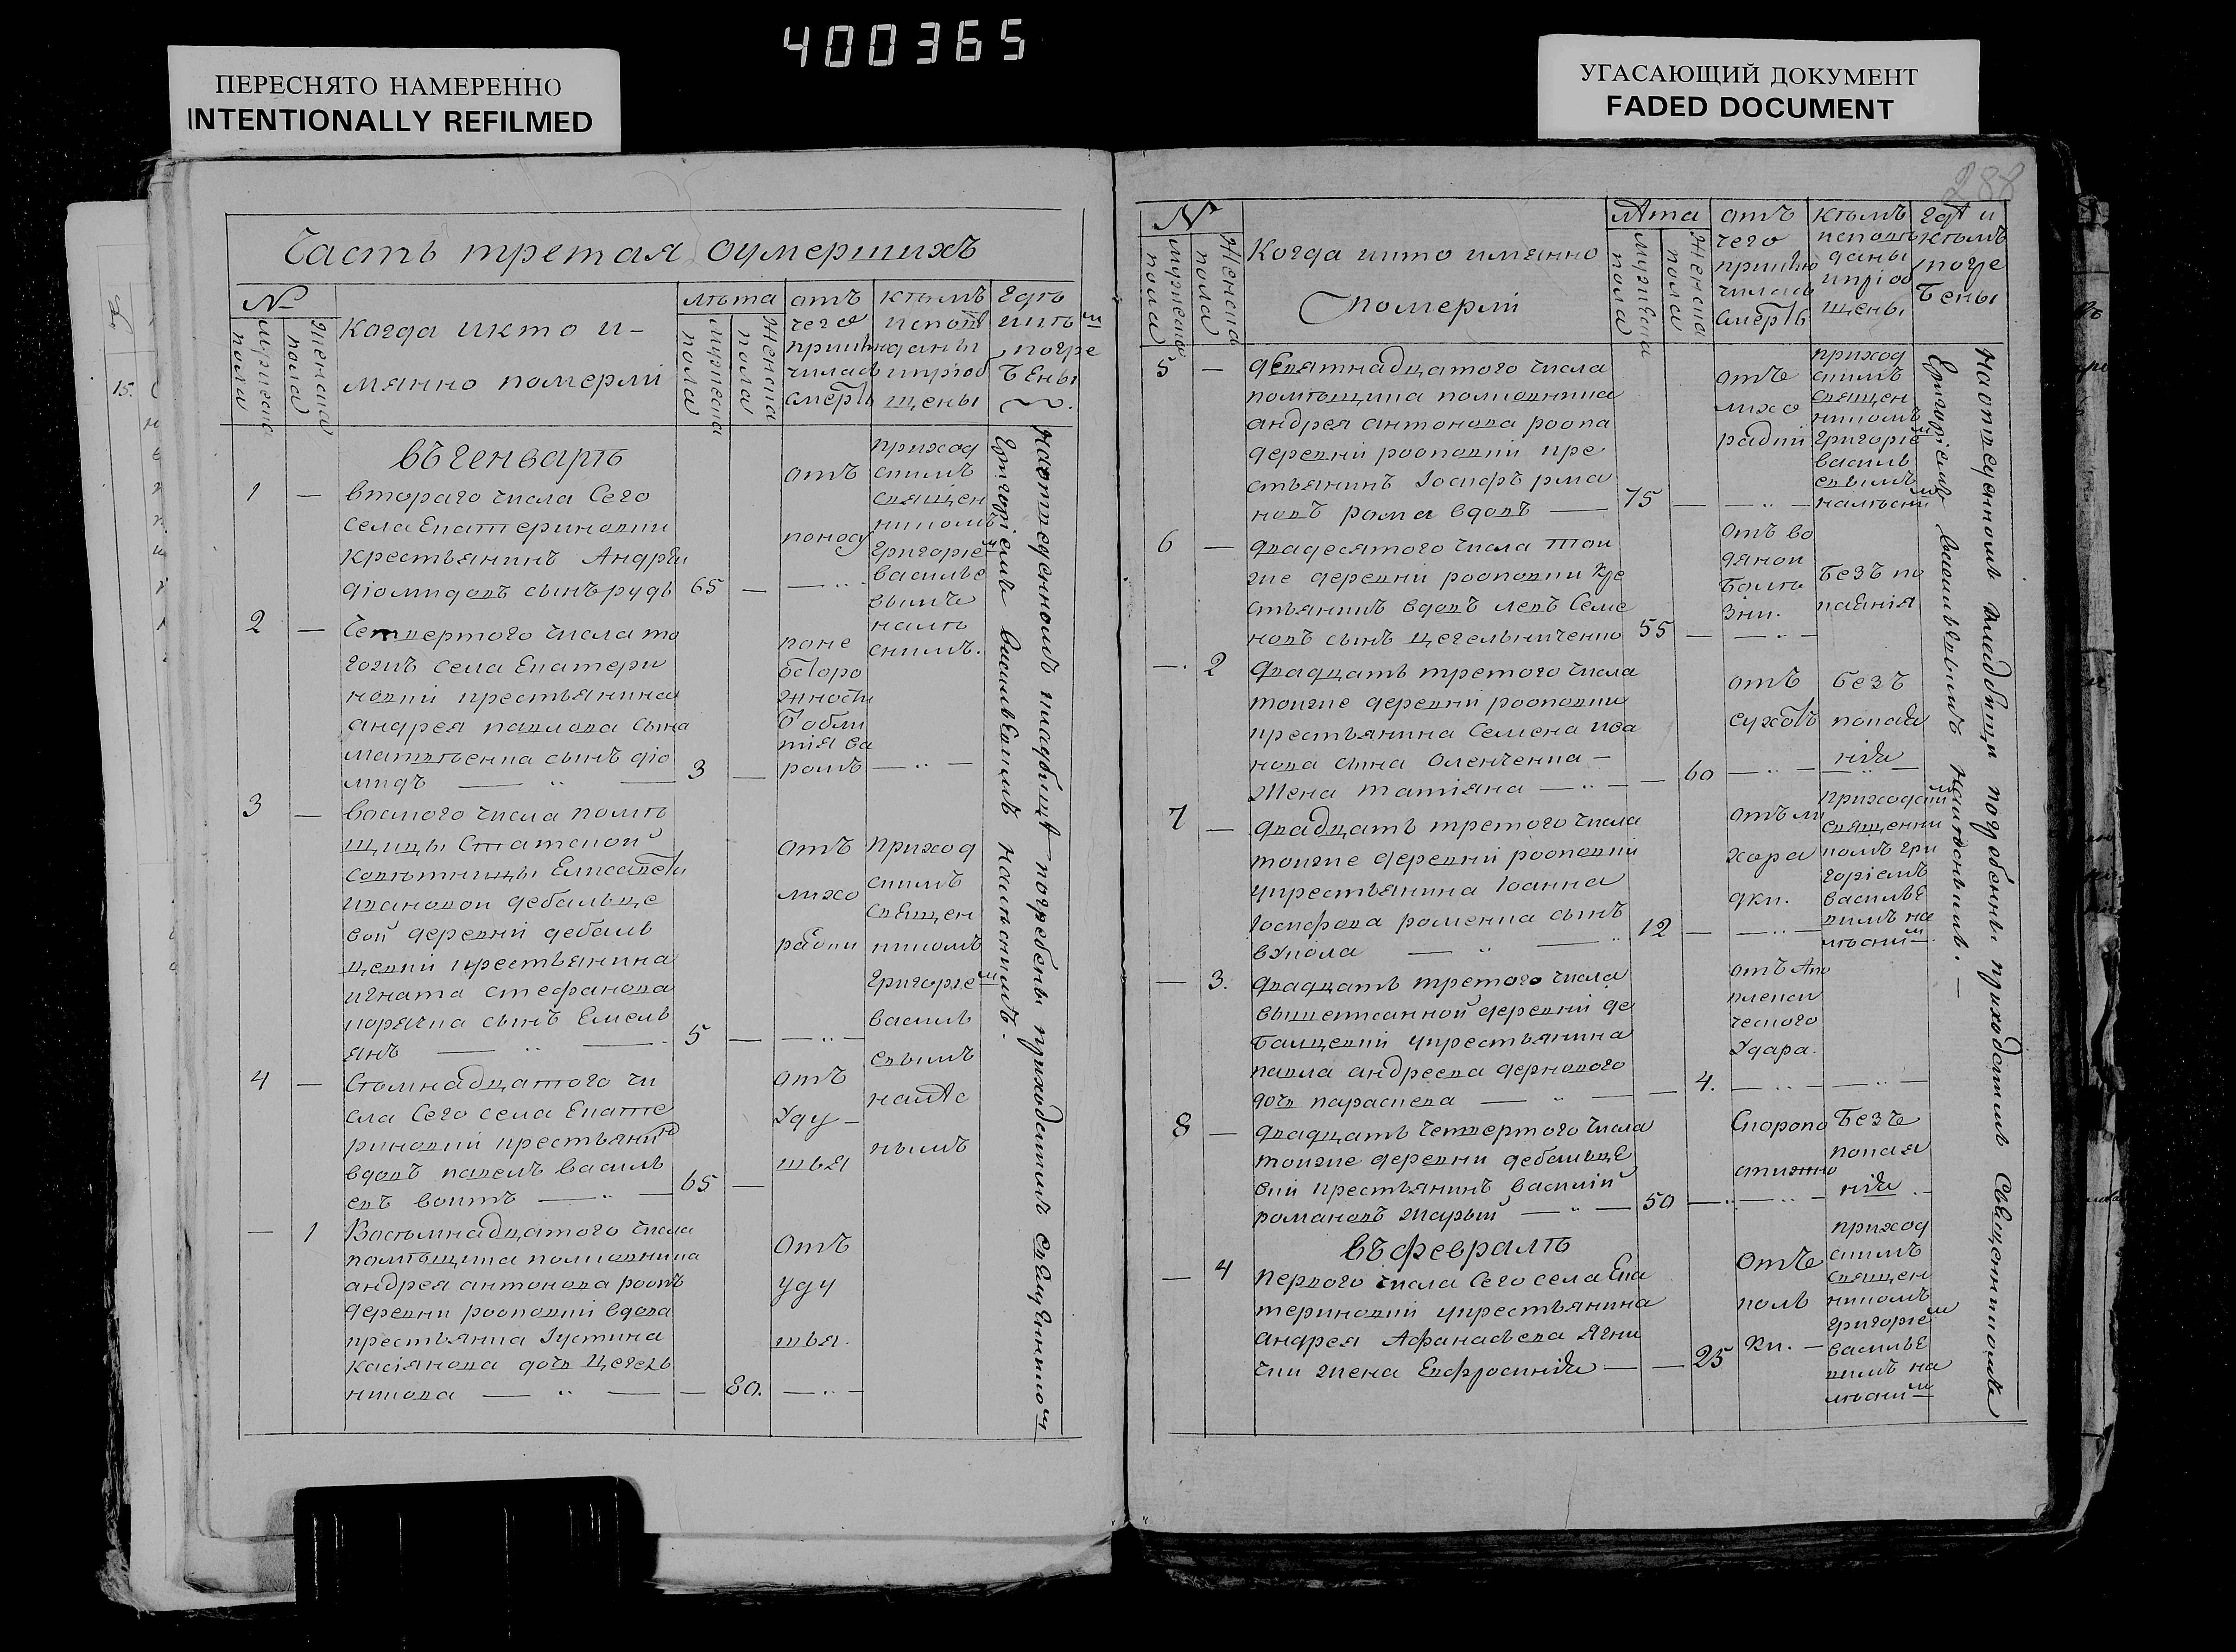 400365
ПЕРЕСНЯТО НАМЕРЕННО
INTENTIONALLY REFILMED
УГАСАЮЩИЙ ДОКУМЕНТ
FADED DOCUMENT
15.
Часть третая оумершихъ
№
мужеска пола
Женска пола
когда икто и-
мянно померлі
лѣта
мужеска пола
Женска пола
отъ
чего
приклю
чилась
смерть
кѣмъ
исповѣ
даны
ипріоб
щены
гдѣ
икѣм
погре
бены
въ генварѣ
1 — втораго числа Сего
села Екатериновки
крестьянинъ Андрѣй
діомидовъ сынъ рудь 65 —
отъ
поносу
приход
скимъ
священ
никомъ
григоріем
василье
вымъ
налѣ
скимъ.
2 — Четвертого числа то
гожъ села Екатери
новки крестьянина
андрея павлова сына
матвѣенка сынъ діо
мидъ — 3 —
поне
осторо
жности
обли
тія ва
ромъ
3 — восмого числа помѣ
щицы Статской
совѣтницы Елисавети
ивановой дебальце
вой деревни дебаль
цевки крестьянина
игната стефанова
корячка сынъ Емель
янъ — 5 —
отъ
лихо
радки
приход
скимъ
священ
никомъ
григоріем
василь
евымъ
4 — Сѣмнадцатого чи
сла Сего села Екате
риновки крестьянин
вдовъ павелъ василь
евъ воитъ — 65 —
отъ
Уду-
шья
— 1 Восѣмнадцатого числа
помѣщика полковника
андрея антонова роопъ
деревни рооповки вдова
крестьянка Іустина
касіянова дочь Цегель
никова — — 80.
отъ
уду
шья.
На отведенномъ кладбищѣ погребены приходскимъ священником
Григоріемъ васильевымъ налѣскимъ.
288
№
мужеска пола
Женска пола
Когда икто имянно
померлі
лѣта
мужеска пола
Женска пола
отъ
чего
приклю
чилась
смерть
кѣмъ
исповѣ
даны
ипріоб
щены
гдѣ и
кѣмъ
погре
бены
5 — девятнадцатого числа
помѣщика полковника
андрея антонова роопа
деревни рооповки кре
стьянинъ Іосифъ рма
новъ рома вдовъ — 75 —
отъ
лихо
радки
приход
скимъ
священ
никомъ
григоріем
василь
евымъ
налѣским
6 — двадесятого числа той
же деревни рооповки кре
стьянинъ вдовъ левъ Семе
новъ сынъ цегельниченко 55 —
отъ во
дяной
болѣ
зни.
безъ по
каянія
— 2 двадцать третого числа
тоижe деревни рооповки
крестьянина Семена ива
нова сына оленченка —
жена татіяна — — 60
отъ
сухотъ
безъ
покая
нія
7 — двадцать третого числа
тоиже деревни рооповки
укрестьянина Іоанна
Іосифова роменка сынъ
вукола — 12 —
отъ ли
хора
дки.
приходским
священни
комъ гри
горіемъ
василье
вимъ на
лѣским
— 3. двадцать третого числа
вышеписанной деревни де
балцевки укрестьянина
павла андреева дернового
дочь параскева — — 4.
отъ Апо
плекси
ческого
Удара.
8 — двадцать Четвертого числа
тоиже деревни дебальце
вки крестьянинъ василій
романовъ жарый — 50 —
Скоропо
стижно
безъ
покая
нія
въ февралѣ
— 4 первого числа Сего села Ека
териновки укрестьянина
андрея Афанасьева Ягни
чки жена Евфросинія — — 25
отъ
коль
ки.
приход
скимъ
священ
никомъ
григоріем
василье
вимъ на
лѣским
На отведенномъ кладбищи погребены приходскимъ Священникомъ
Григоріемъ васильевымъ налѣскимъ. —